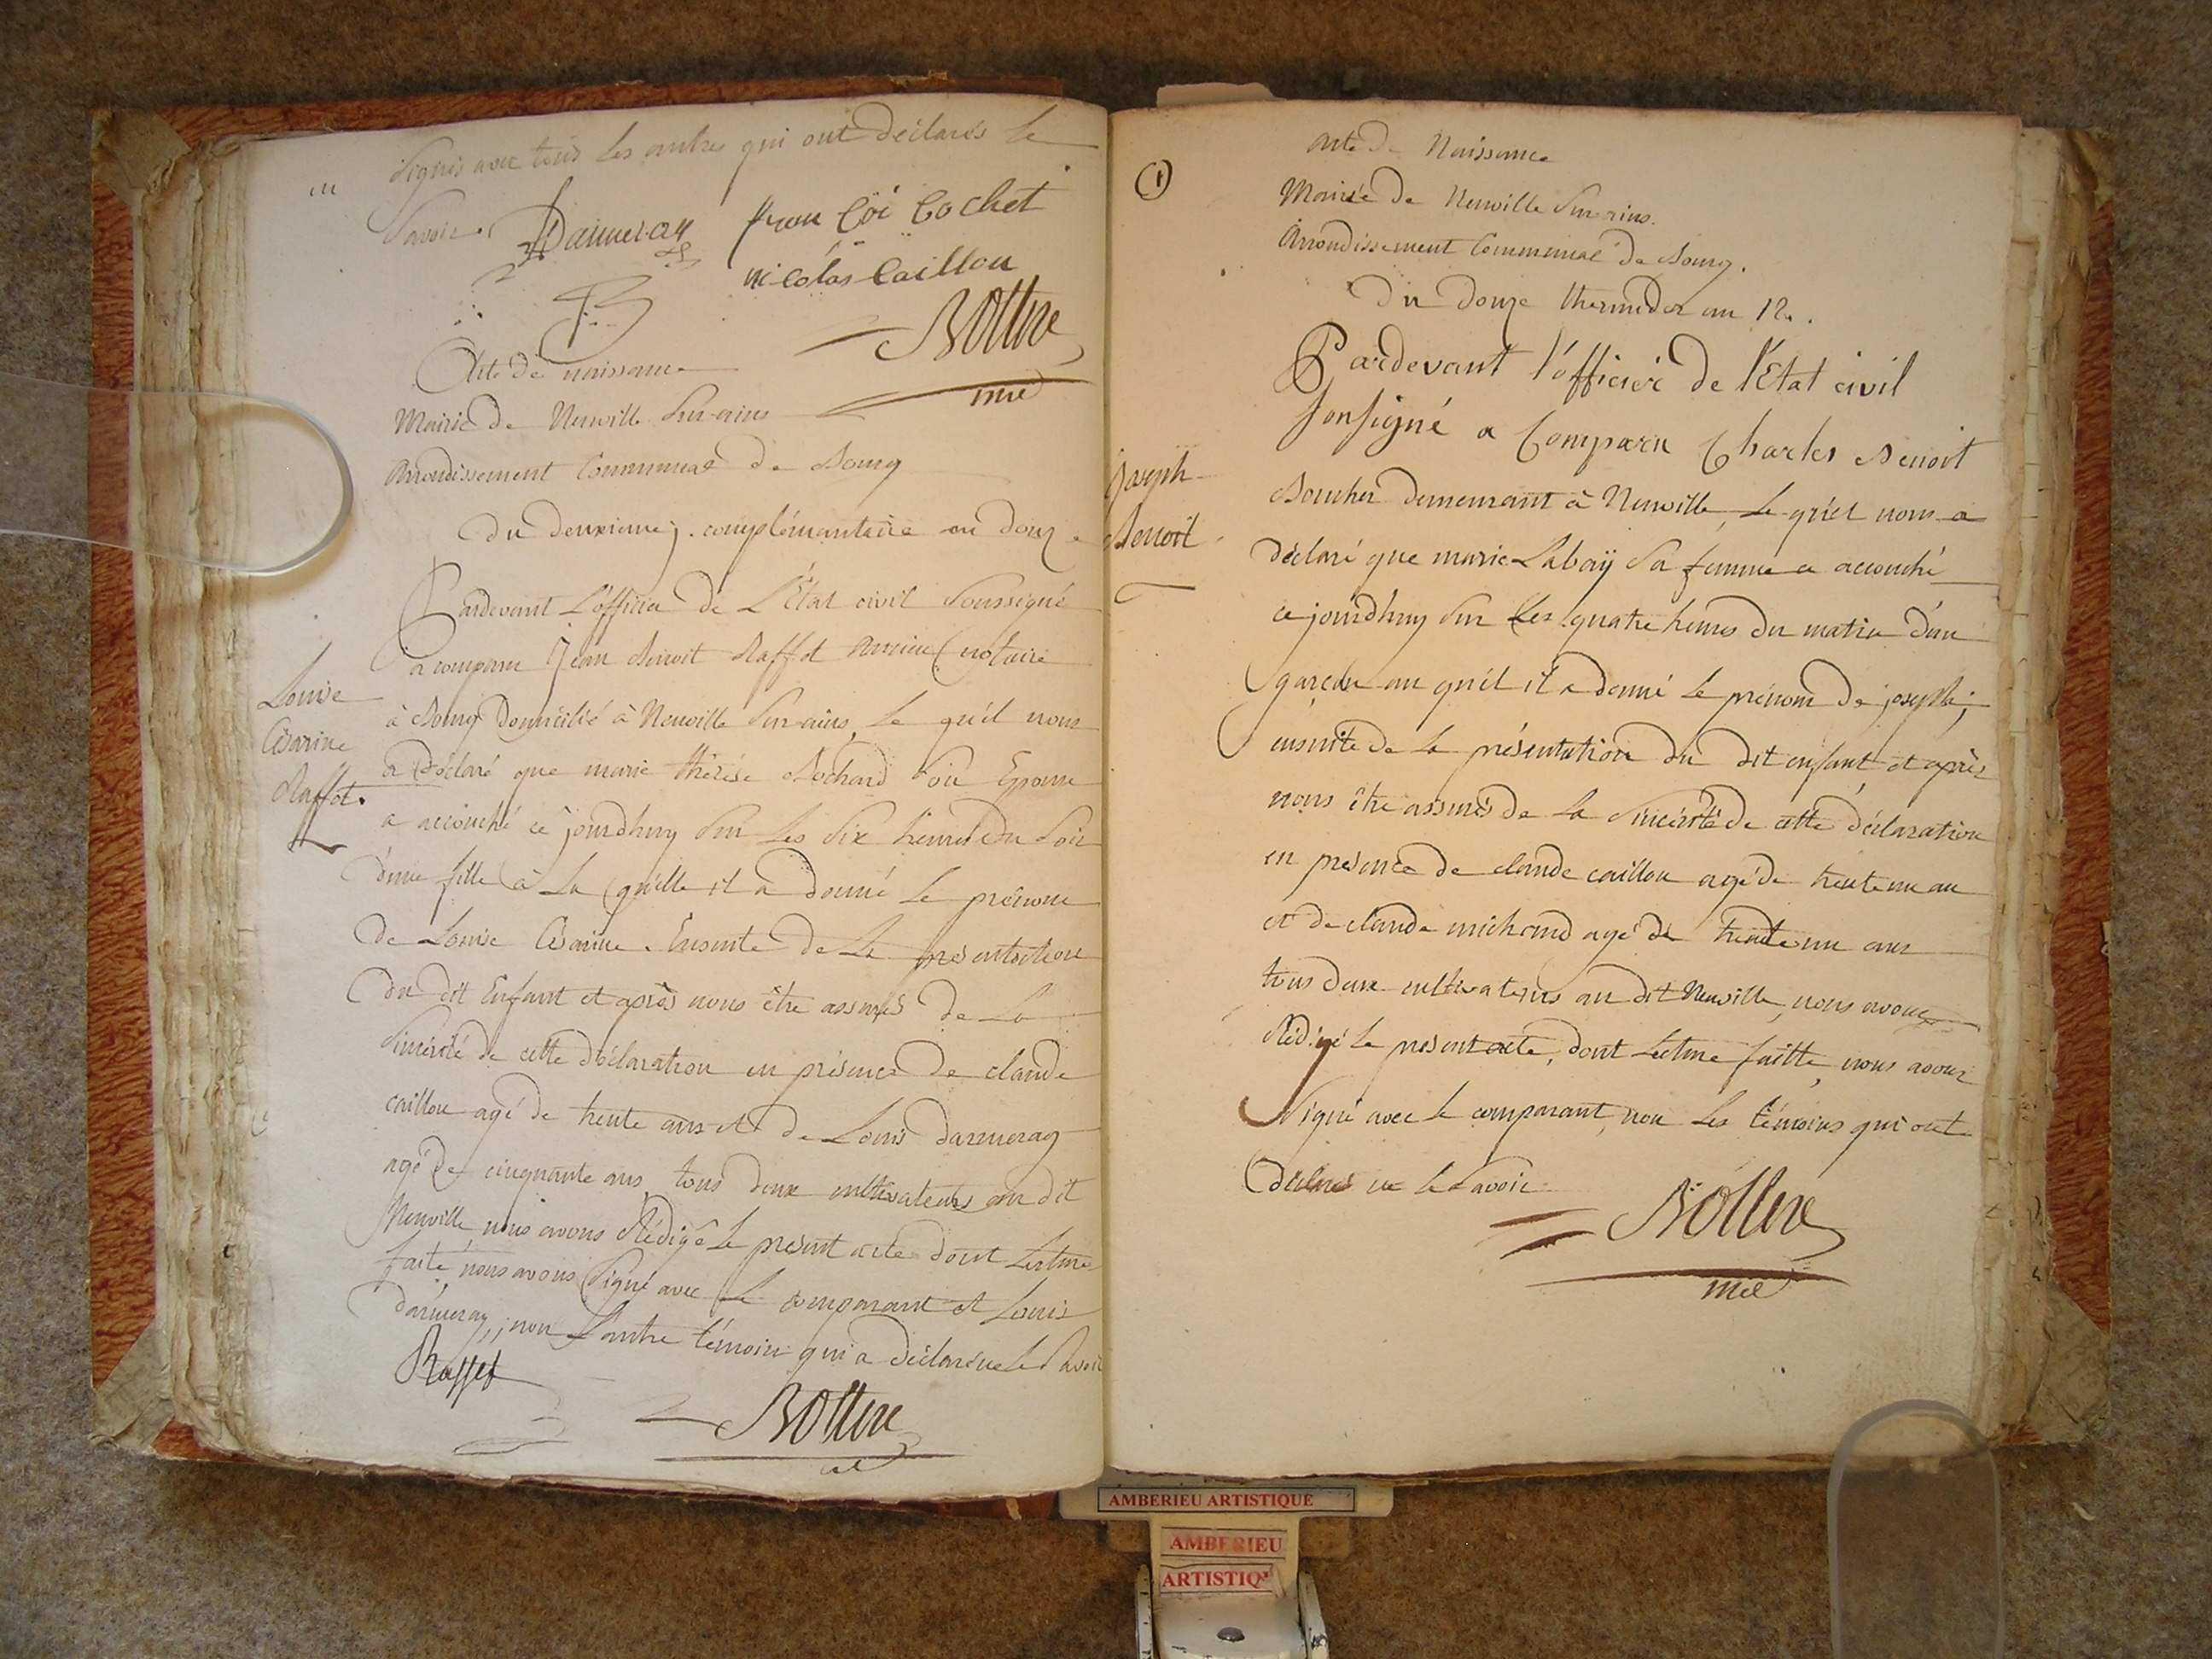 signés avec tous les autres qui ont déclarés le
Savoir. Darmeray françoi Cochet
nicolas Caillou
Bottire
mre
Acte de naissance
Mairie de Neuville Sur-ains
Arrondissement Communal de Bourg
du deuxieme j. complémentaire an douze
Louise
Césarine
Raffet.
Pardevant L'officier de L'Etat civil Soussigné
a comparu Jean Benoit Raffet Ancien notaire
à Bourg Domicilié à Neuville Sur-ains, le quel nous
a Déclaré que marie thérèse Bochard son Epouse
a accouché ce jourdhuy Sur les Six heures du Soir
d'une fille à la quelle il a donné le prénom
de Louise Césarine. Ensuite de la présentation
du dit Enfant et après nous être assurés de la
Sincérité de cette déclaration en présence de claude
caillou agé de trente ans et de Louis darmeray
agé de cinquante ans, tous deux cultivateurs au dit
Neuville, nous avons Rédigé le présent acte dont Lecture
faite, nous avons Signé avec le comparant et Louis
darmeray, non L'autre témoin qui a déclaré ne le Savoir
Raffet
Bottire
mre
1
acte de Naissance
Mairie de Neuville Sur ains.
Arrondissement Communal de Bourg.
Du douze thermidor an 12.
Joseph
Benoit
Pardevant l'officier de l'Etat civil
Sousigné a Comparu Charles Benoit
Boucher demeurant à Neuville, le quel nous a
déclaré que marie Labaÿ Sa femme a accouché
ce jourdhuy Sur les quatre heures du matin d'un
garçon au quel il a donné le prénom de joseph;
ensuite de la présentation du dit enfant et après
nous être assurés de la Sincérité de cette déclaration
en présence de claude caillou agé de trente un an
et de claude michaud agé de trente un ans
tous deux cultivateurs au dit Neuville, nous avons
Rédigé le présent acte, dont lecture faitte, nous avons
Signé avec le comparant, non les témoins qui ont
déclarés ne le Savoir
Bottire
mre
AMBERIEU ARTISTIQUE
AMBERIEU
ARTISTIQ